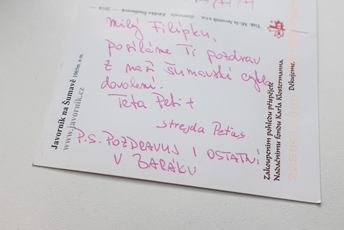 Milý Filípku,
posíláme Ti pozdrav
z naší Šumavské cyklo
dovolené.
Teta Peti +
strejda Petas.
P.S. POZDRAVUJ I OSTATNÍ
V BARÁKU
Javorník na Šumavě 1066m n.m.
www.javornik.cz
Zakoupením pohledu přispějete
Nadačnímu fondu Karla Klostermanna.
Děkujeme.